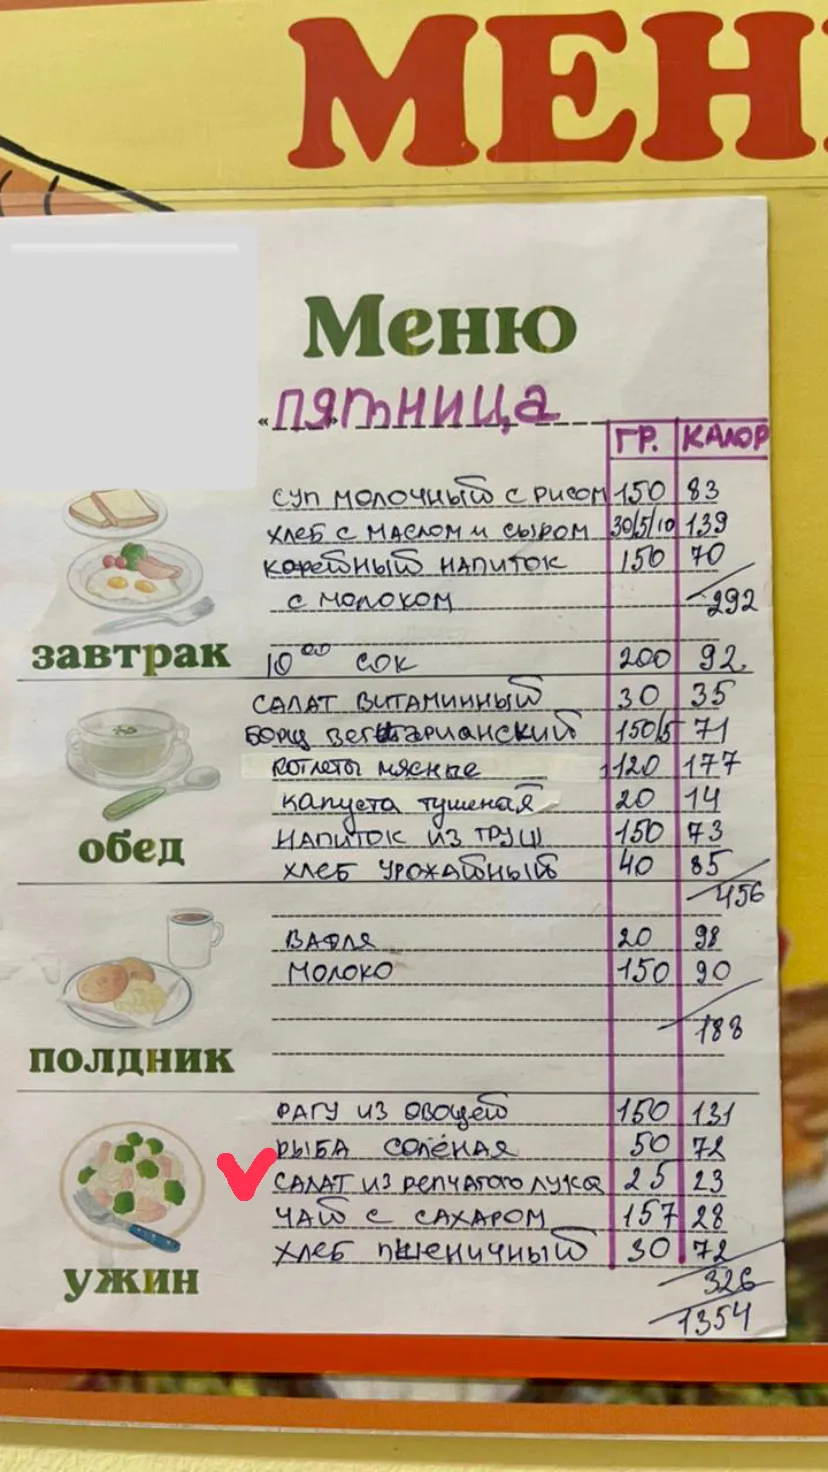 МЕН
Меню
«ПЯТНИЦА
ГР. КАЛОР
завтрак
СУП МОЛОЧНЫЙ С РИСОМ 150 83
ХЛЕБ С МАСЛОМ И СЫРОМ 30/5/10 139
КОФЕЙНЫЙ НАПИТОК 150 70
С МОЛОКОМ 292
10 00 СОК 200 92
обед
САЛАТ ВИТАМИННЫЙ 30 35
БОРЩ ВЕГЕТАРИАНСКИЙ 150/5 71
КОТЛЕТЫ МЯСНЫЕ 120 177
КАПУСТА ТУШЕНАЯ 20 14
НАПИТОК ИЗ ГРУШ 150 73
ХЛЕБ УРОЖАЙНЫЙ 40 85
456
полдник
ВАФЛЯ 20 98
МОЛОКО 150 90
188
ужин
РАГУ ИЗ ОВОЩЕЙ 150 131
РЫБА СОЛЁНАЯ 50 72
САЛАТ ИЗ РЕПЧАТОГО ЛУКА 25 23
ЧАЙ С САХАРОМ 157 28
ХЛЕБ ПШЕНИЧНЫЙ 30 72
326
1354